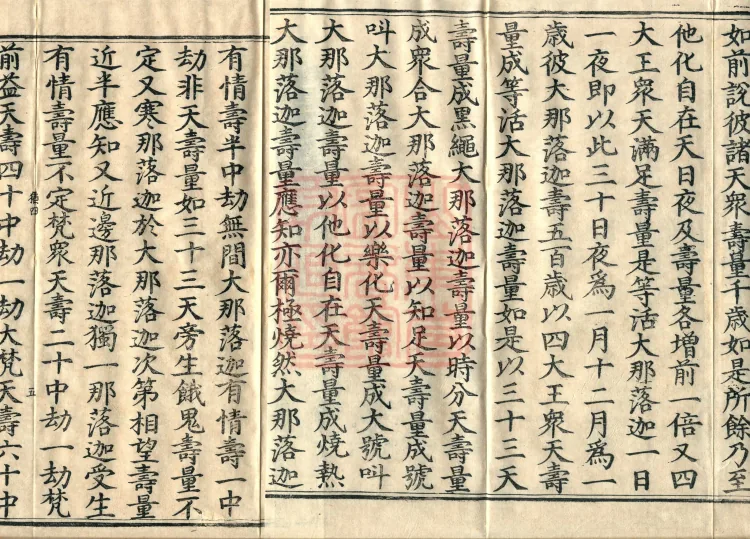 如前說彼諸天衆壽量千歲如是所餘乃至
他化自在天日夜及壽量各增前一倍又四
大王衆天滿足壽量是等活大那落迦一日
一夜即以此三十日夜爲一月十二月爲一
歲彼大那落迦壽五百歲以四大王衆天壽
量成等活大那落迦壽量如是以三十三天
壽量成黑繩大那落迦壽量以時分天壽量
成衆合大那落迦壽量以知足天壽量成號
叫大那落迦壽量以樂化天壽量成大號叫
大那落迦壽量以他化自在天壽量成燒熱
大那落迦壽量應知亦爾極燒然大那落迦
有情壽半中劫無間大那落迦有情壽一中
劫非天壽量如三十三天旁生餓鬼壽量不
定又寒那落迦於大那落迦次第相望壽量
近半應知又近邊那落迦獨一那落迦受生
有情壽量不定梵衆天壽二十中劫一劫梵
四 五
前益天壽四十中劫一劫大梵天壽六十中